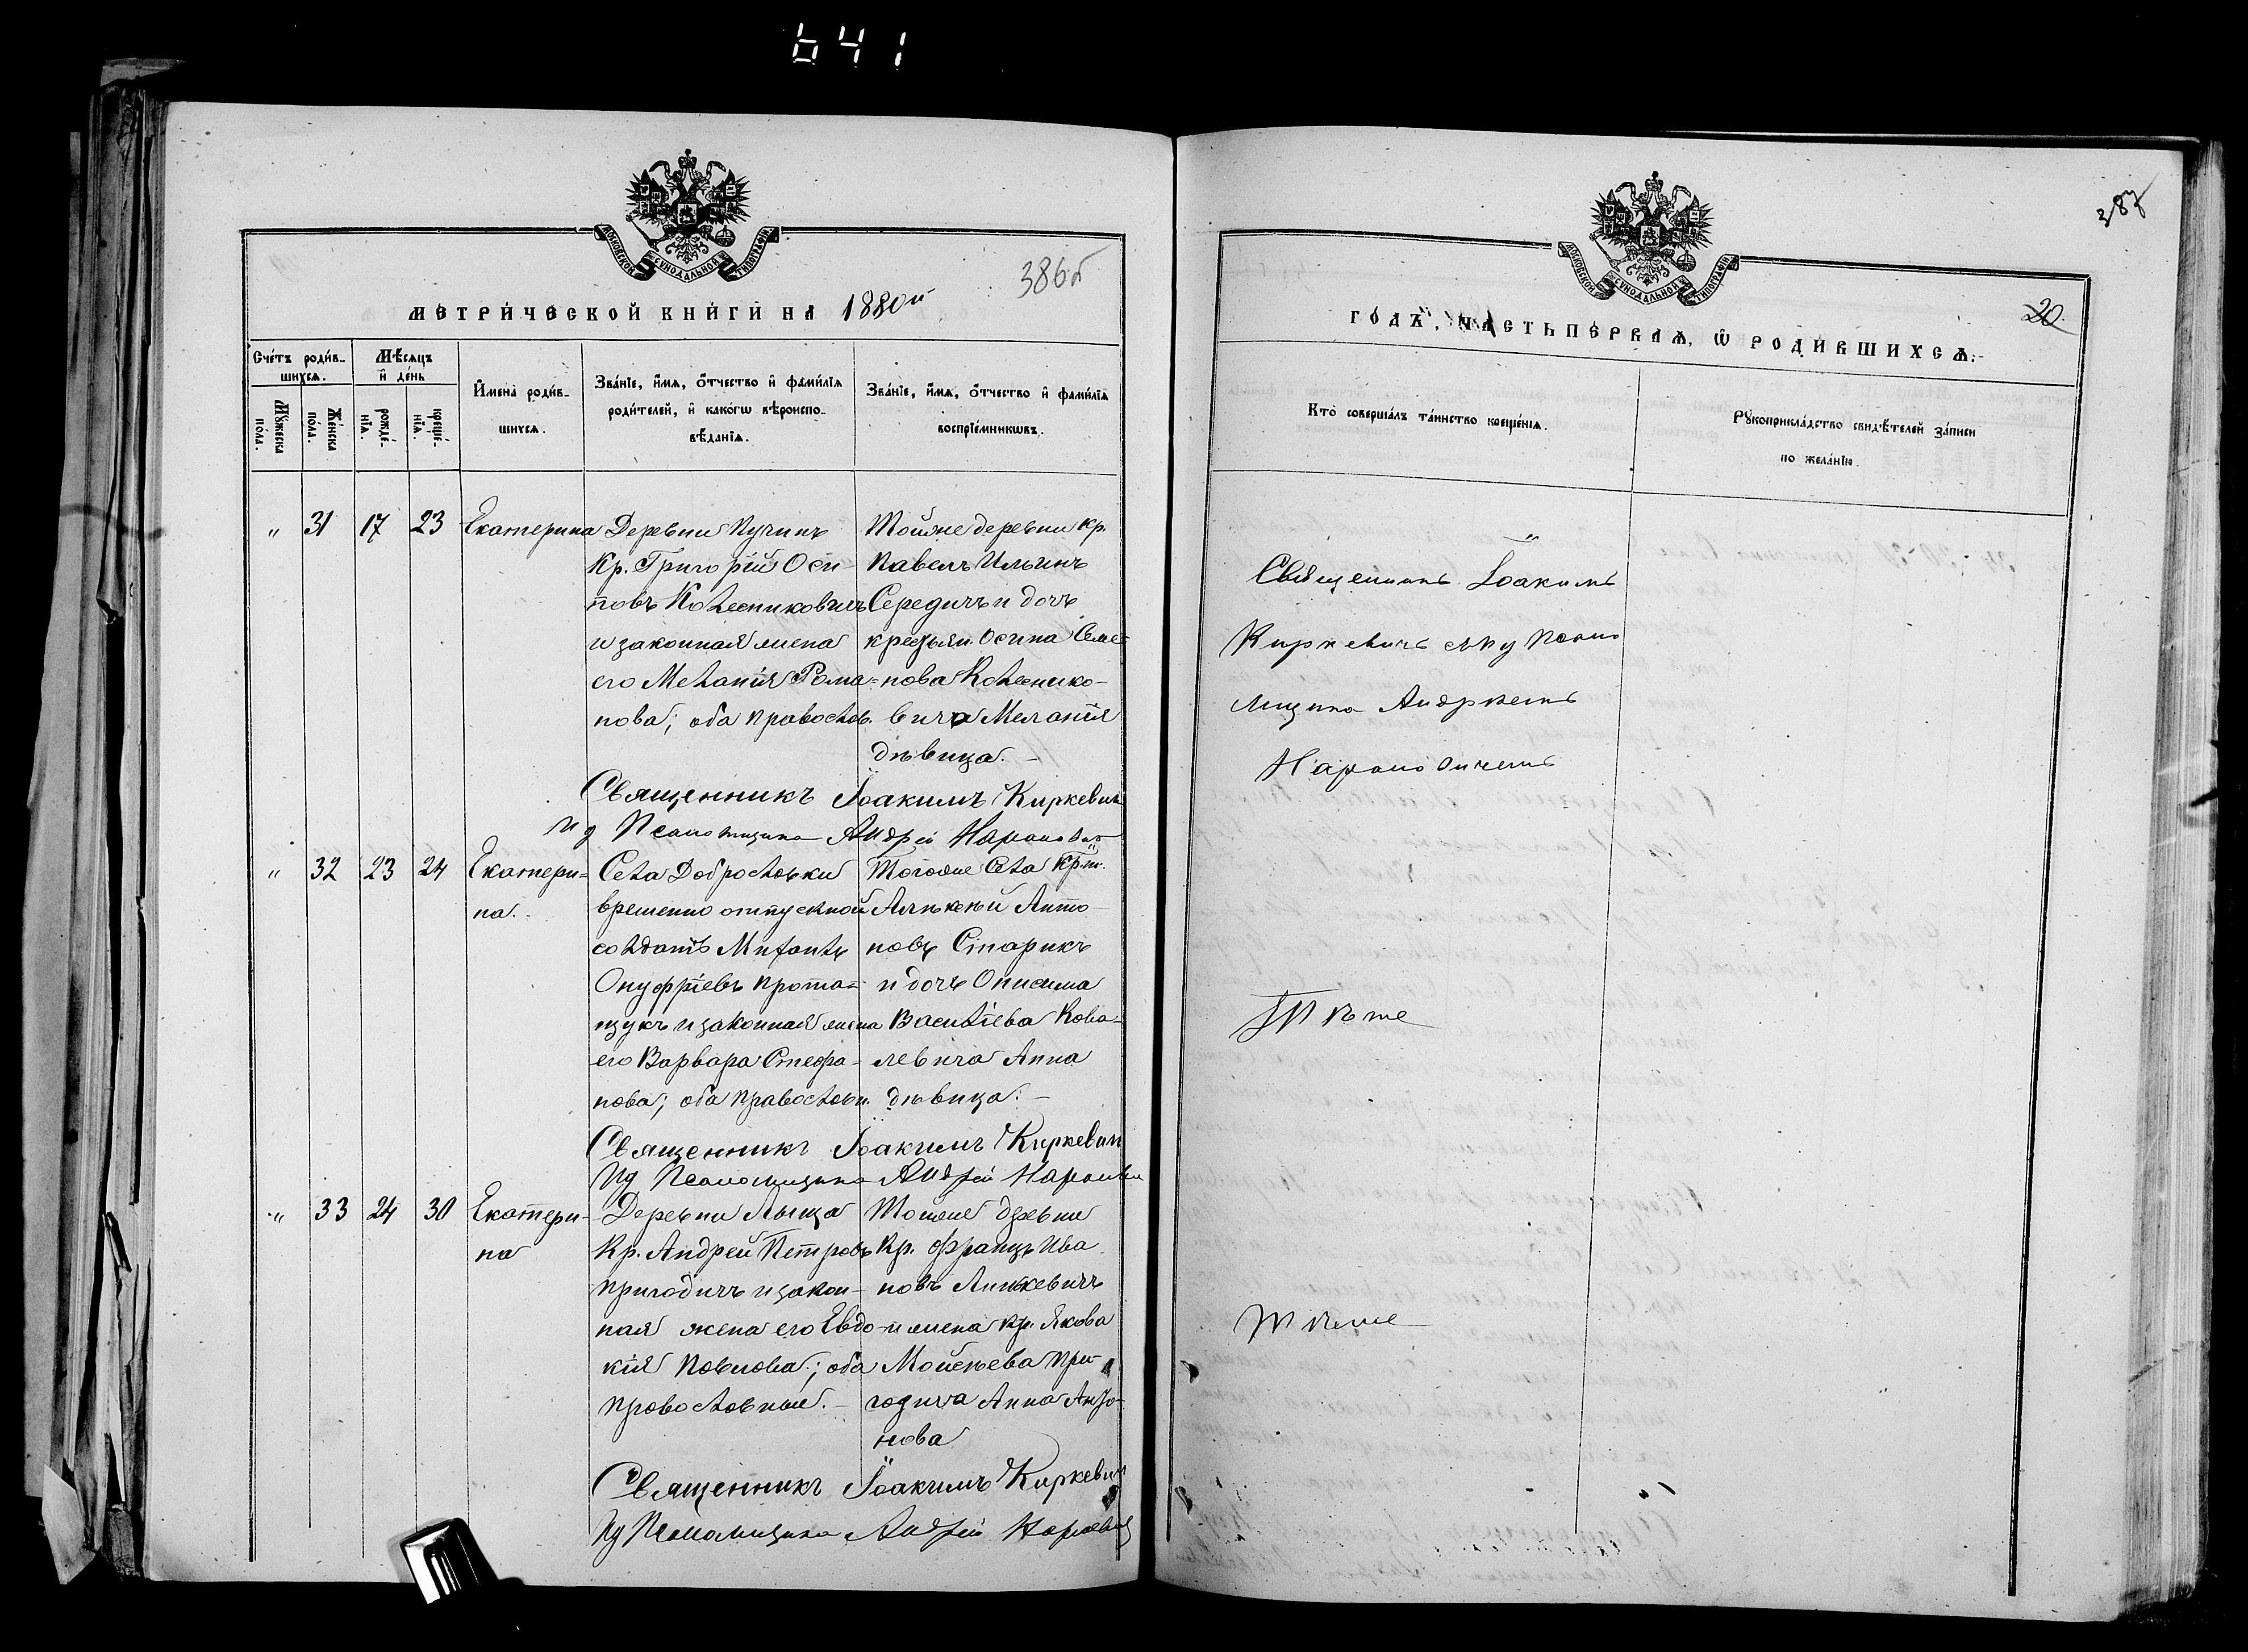 641
МОСКОВСКОЙ СѴНОДАЛЬНОЙ ТИПОГРАФІИ
386б
МЕТРИ́ЧЕСКОЙ КНИ́ГИ НА 1880й
Сче́тъ роди́в-
шихсѧ.
Мѣ́сяцъ
и҆ де́нь
Мꙋ́жеска
по́ла.
Же́нска
по́ла.
рожде́-
нїѧ.
креще́-
нїѧ.
И҆мена̀ роди́в-
шихсѧ.
Зва́нїе, и҆́мѧ, ѻ҆́тчество и҆ фами́лїѧ
роди́телей, и҆ како́гѡ вѣроиспо-
вѣ́данїѧ.
Зва́нїе, и҆́мѧ, ѻ҆́тчество и҆ фами́лїѧ
воспрїе́мникѡвъ.
" 31 17 23 Екатерина
Деревни Пучинъ
Кр. Григорій Оси-
повъ Колесниковичъ
и законная жена
его Меланія Рома-
нова; оба правослов.
Тойже деревни кр.
Павелъ Ильинъ
Середичъ и дочь
крестьян. Осипа Семе-
нова Колеснико-
вича Меланія
дѣвица. –
Священникъ Іоакимъ Киркевичъ
И д Псаломщика Андрей
" 32 23 24 Екатери-
на.
Села Добрословки
временно отпускной
солдатъ
Онуфріевъ Прота-
щукъ и законная жена
его Варвара Стефа-
нова; оба православн.
Тогоже Села Кр-нъ.
Алѣксѣй Анто-
новъ Старикъ
и дочь Онисима
Василіева Кова-
левича Анна
дѣвица. –
Священникъ Іоакимъ Киркевич
Ид Псаломщика Андрей
" 33 24 30 Екатери-
на
Деревни Лыща
Кр. Андрей Петровъ
Пригодичъ и закон-
ная жена его Евдо-
кія Павлова; оба
православные. –
Тойже деревни
Кр. Францъ Ива
новъ Линкевичъ
и жена кр. Якова
Мойсѣева При-
годича Анна Анто-
нова
Священникъ Іоакимъ Киркевич
Ид Псаломщика Андрей
387
МОСКОВСКОЙ СѴНОДАЛЬНОЙ ТИПОГРАФІИ
20
ГО́ДЪ, ЧА́СТЬ ПЕ́РВАѦ, Ѡ҆ РОДИ́ВШИХСѦ:-
Кто̀ соверша́лъ та́инство креще́нїѧ.
Рꙋкоприкла́дство свидѣ́телей за́писи
по жела́нїю.
Священникъ Іоакимъ
Киркевичъ съ Псало
мщика Андреемъ
Тѣже
Тѣже